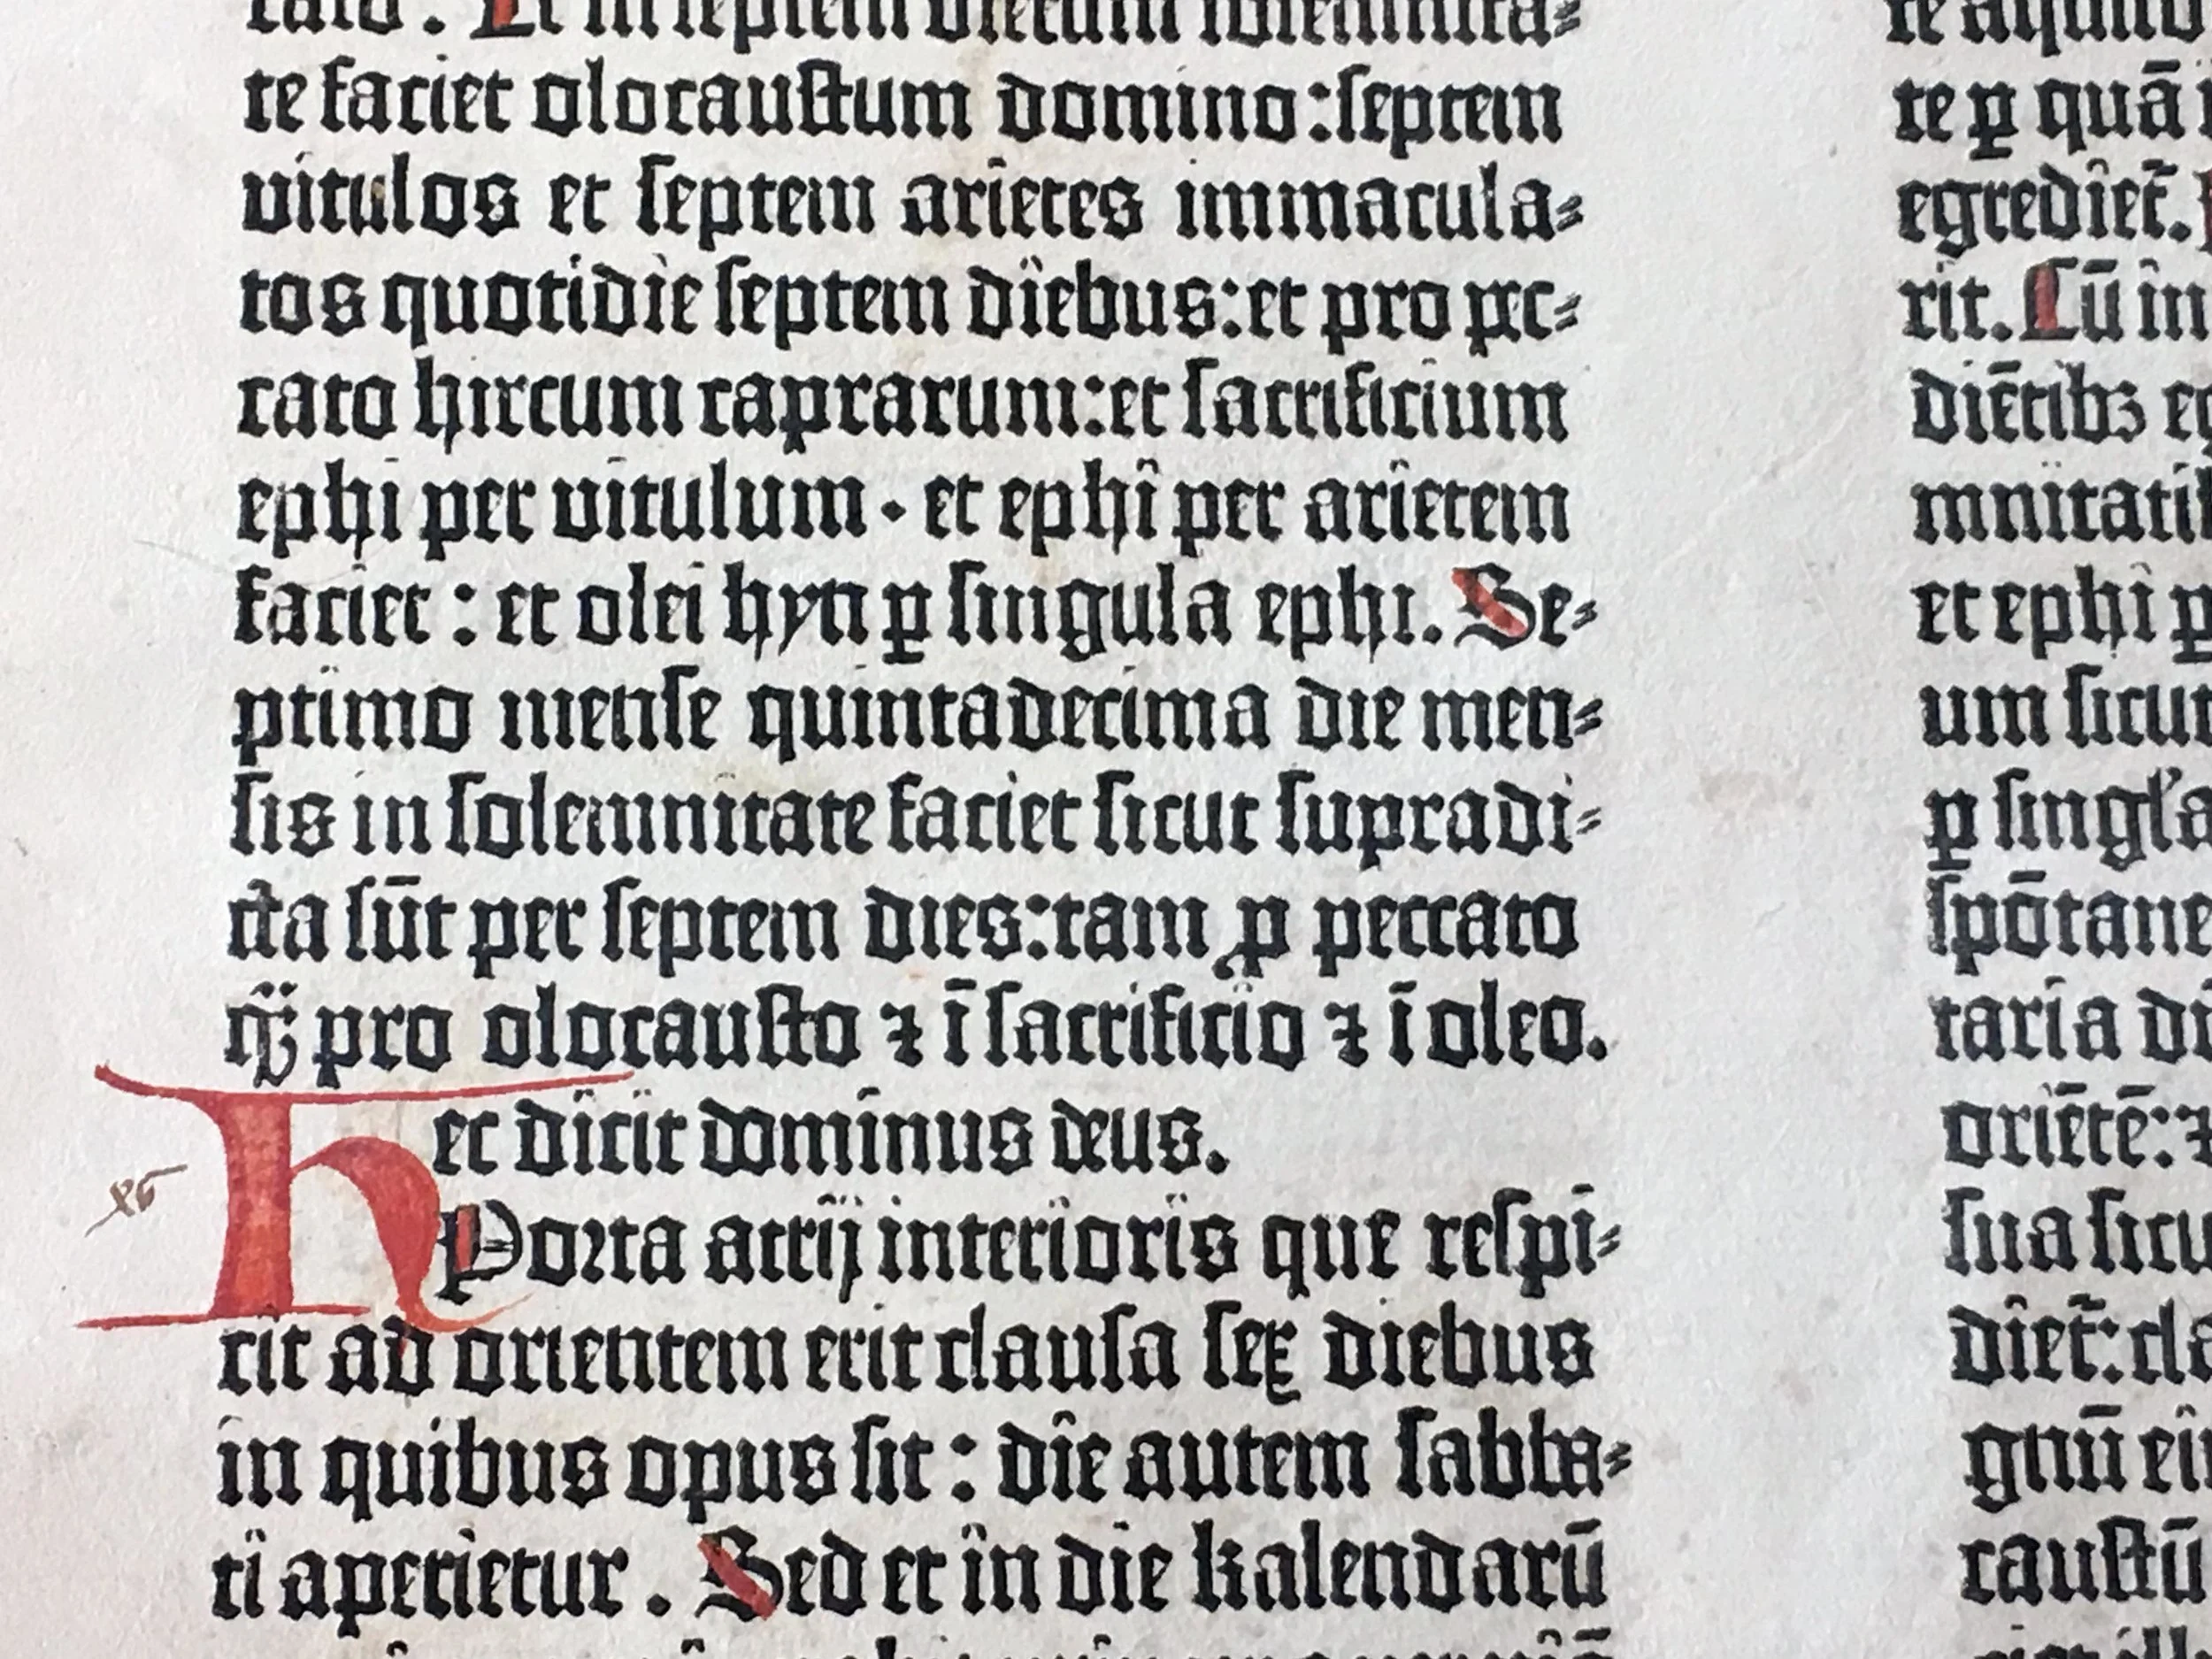 cato. Et in septem dierum solemnita⸗
te faciet olocaustum domino:septem
vitulos et septem arietes immacula⸗
tos quotidie septem diebus:et pro pec⸗
cato hircum caprarum:et sacrificium
ephi per vitulum · et ephi per arietem
faciet : et olei hyn ꝑ singula ephi. Se⸗
ptimo mense quintadecima die men⸗
sis in solemnitate faciet sicut supradi⸗
cta sūt per septem dies:tam ꝓ peccato
qꝫ pro olocausto ⁊ ī sacrificio ⁊ ī oleo.
Hec dicit dominus deus.
Porta atrij interioris que respi⸗
cit ad orientem erit clausa sex diebus
in quibus opus sit : die autem sabba⸗
ti aperietur . Sed et in die kalendarū
te aquilo
te ꝑ quā
egrediet̄.
rit. Cū in
diētibꝫ
mnitatib
et ephi ꝑ
um sicut
ꝑ singl'a
spōtane
taria
oriētē: ⁊
sua sicu
diet̄: cla
gnū ei
caustū